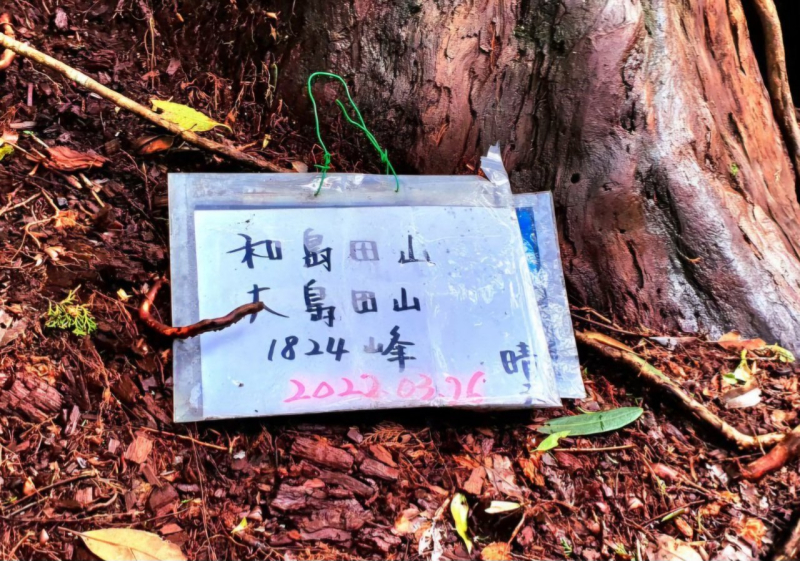 和島田山
大島田山
1824峰 晴
2022.03.26